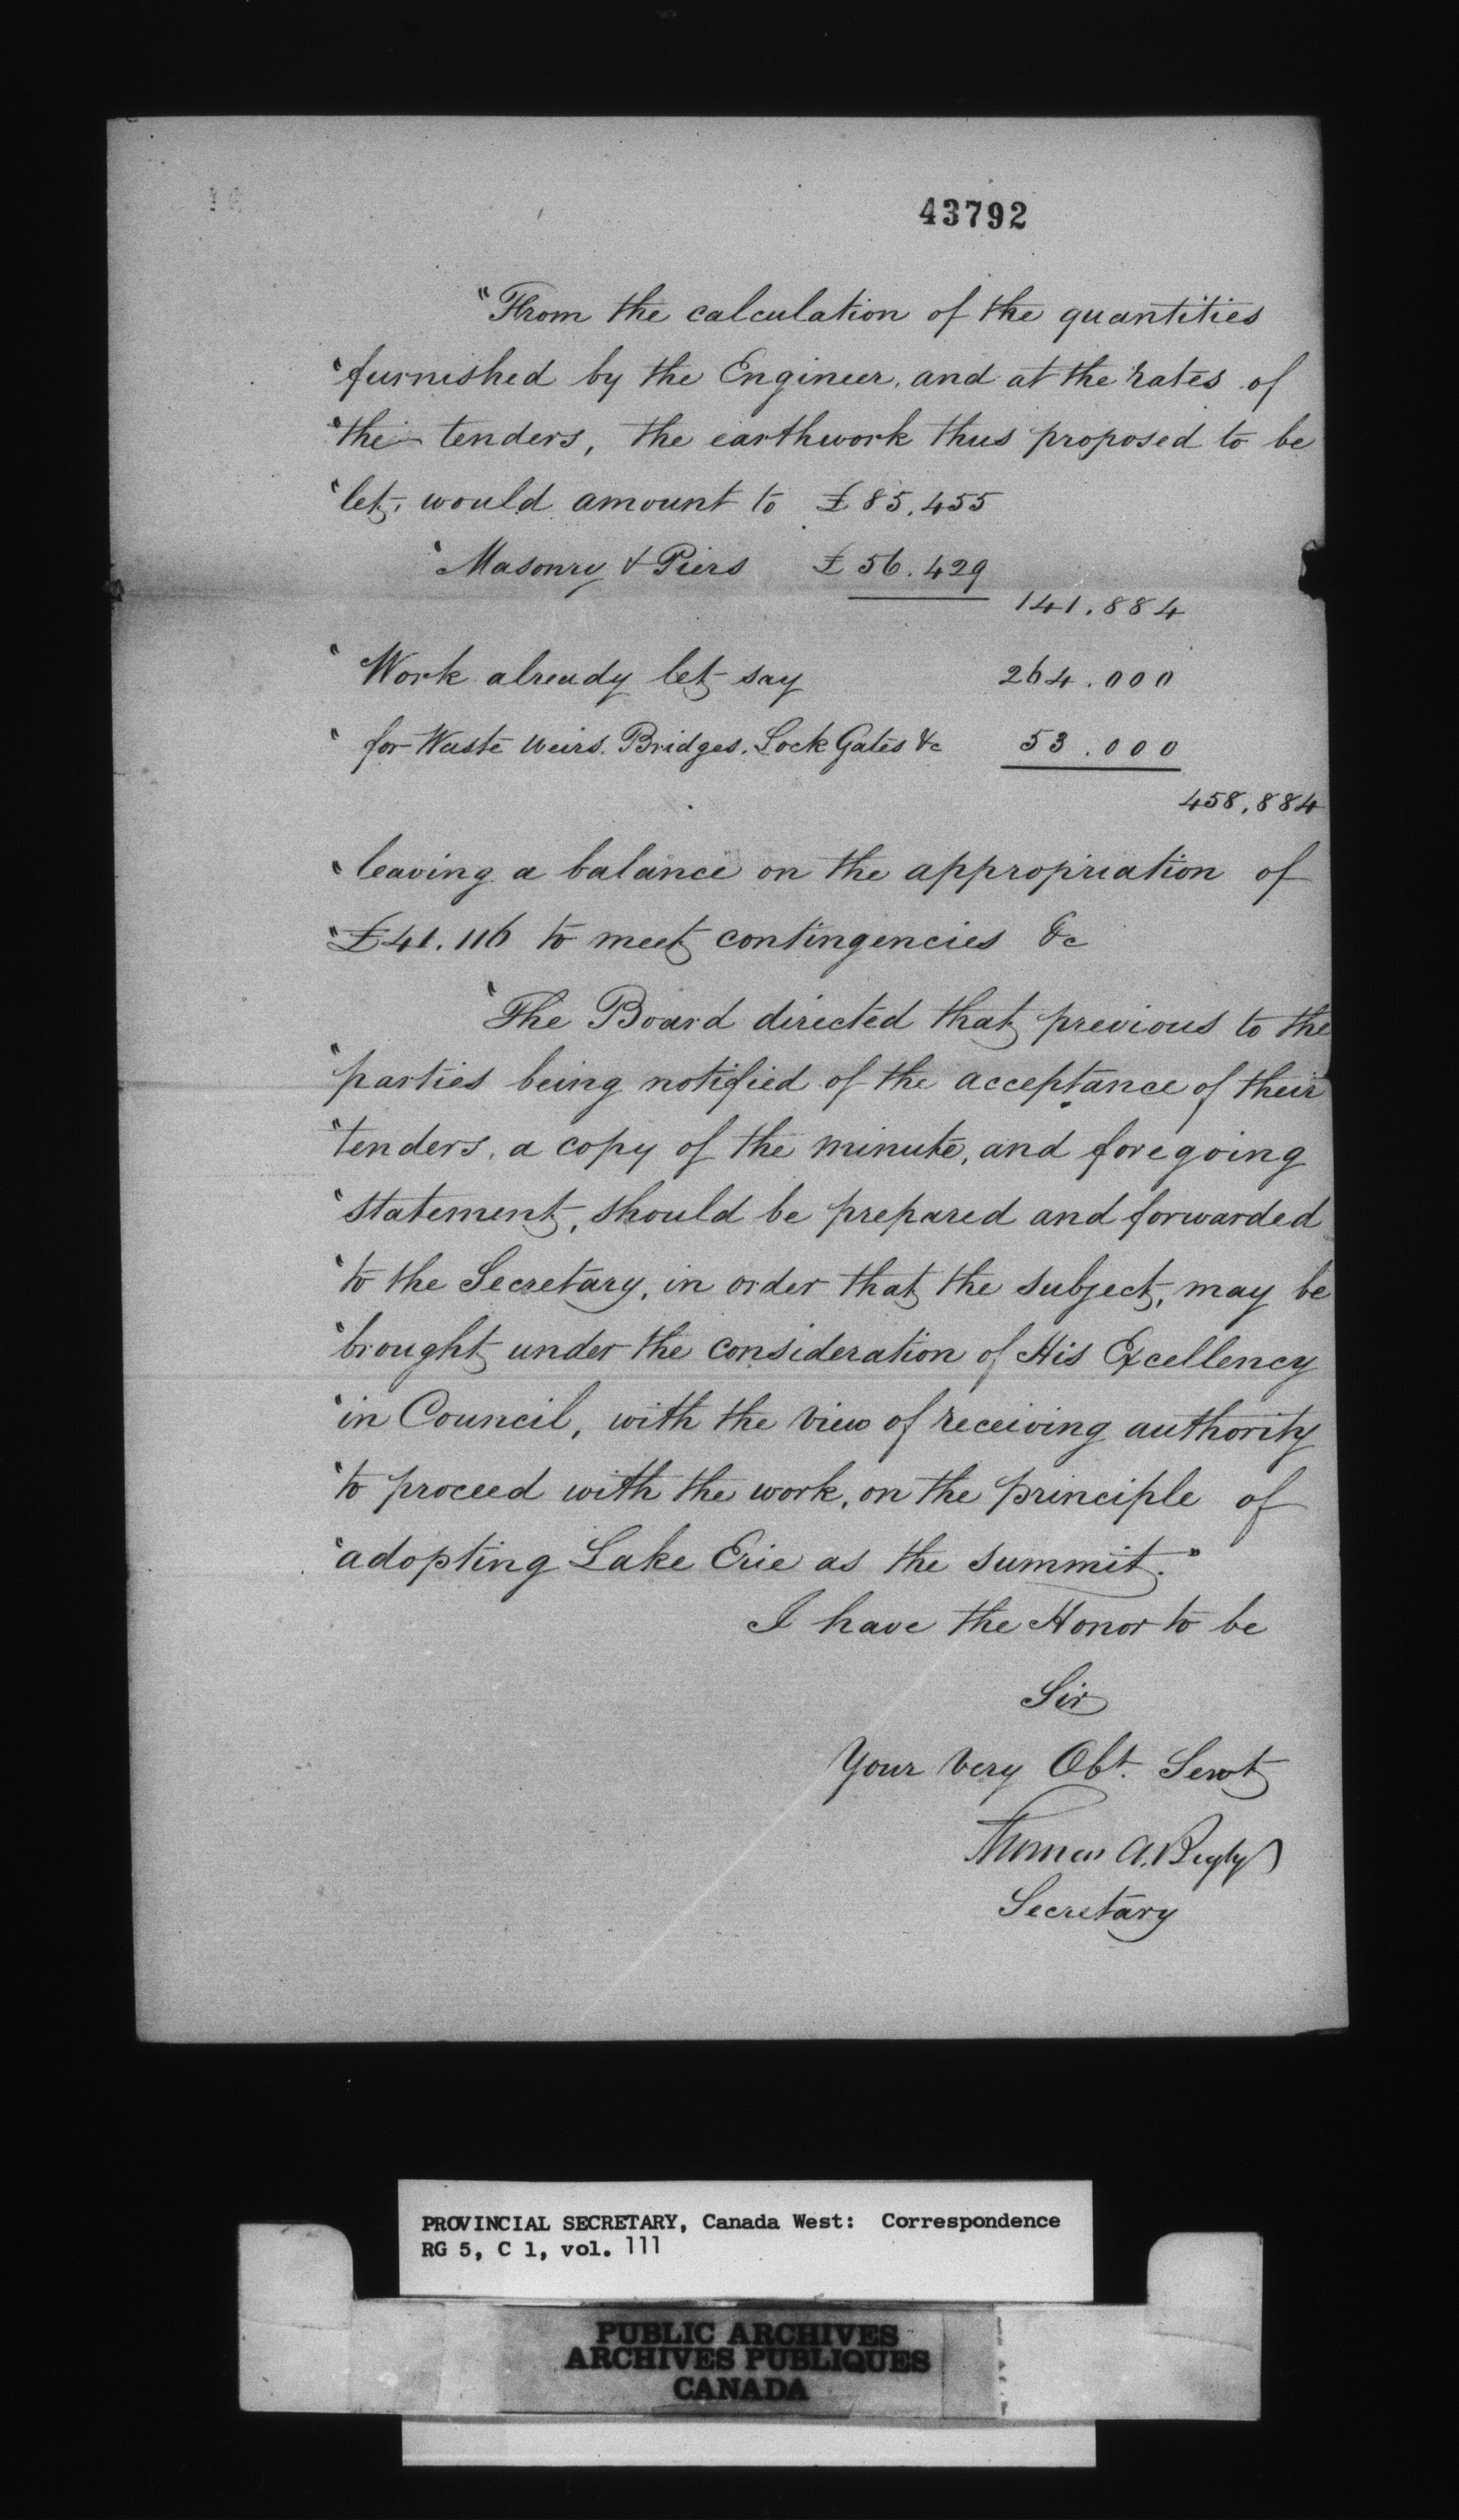 43792
"From the calculation of the quantities
"furnished by the Engineer, and at the rates of
"the tenders, the earthwork thus proposed to be
"let, would amount to £85.455
" Masonry & Piers £56.429
141.884
" Work already let say 264.000
" for Waste Weirs. Bridges. Lock Gates &c 53.000
458,884
"leaving a balance on the appropriation of
"£41.116 to meet contingencies &c
"The Board directed that previous to the
"parties being notified of the acceptance of their
"tenders, a copy of the minute, and foregoing
"statement, should be prepared and forwarded
"to the Secretary, in order that the subject, may be
"brought under the consideration of His Excellency
"in Council, with the view of receiving authority
"to proceed with the work, on the principle of
"adopting Lake Erie as the summit."
I have the Honor to be
Sir
Your very Obt. Servt
Thomas A. Begly
Secretary
PROVINCIAL SECRETARY, Canada West: Correspondence
RG 5, C 1, vol. 111
PUBLIC ARCHIVES
ARCHIVES PUBLIQUES
CANADA